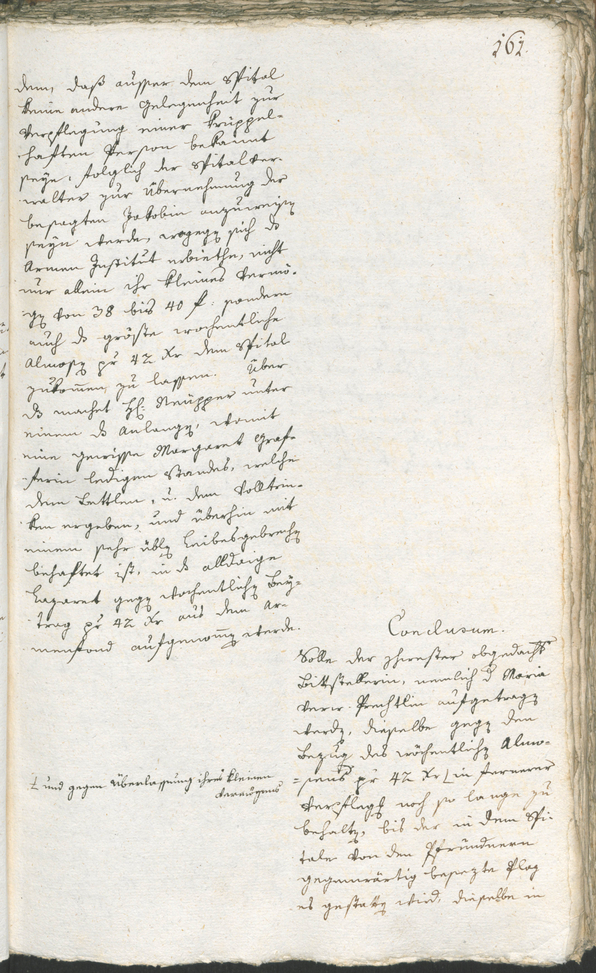 161.
dem, daß ausser dem Spital
keine andere Gelegenheit zur
Verpflegung einer krüppel-
haften Person bekannt
seye, folglich der Spitalver-
walter zur Übernehmung der
besagten Jakobin anzuweisen
seyn werde, wogegen sich das
Armen Institut erbiethe, nicht
nur allein ihr kleines Vermö-
gen von 38 bis 40 f. sondern
auch das gröste wochentliche
Almosen pr 42 Xr dem Spital
zukommen zu lassen. Über
das machet H: Neupper unter
einem das Anlangen, womit
eine gewisse Margaret Graf-
ferin ledigen Standes, welche
dem Bettlen, u. dem Volltrin-
ken ergeben, und überhin mit
einem sehr üblen Leibesgebrechen
behaftet ist, in das alldaige
Lazaret gegen wochentlichen Bey-
trag pr 42 Xr aus dem Ar-
menfond aufgenommen werde.
Conclusum.
Solle der Schwester obgedachter
Bittstellerin, nemlich der Maria
verw. Prechtlin aufgetragen
werden, dieselbe gegen den
Bezug des wöchentlichen Almo-
sens pr 42 Xr in fernerer
Verpflegung noch so lange zu
behalten, bis der in dem Spi-
tale von den Pfründnern
gegenwärtig besezte Plaz
es gestatten wird, dieselbe in
und gegen Überlassung ihres kleinen
Vermögens